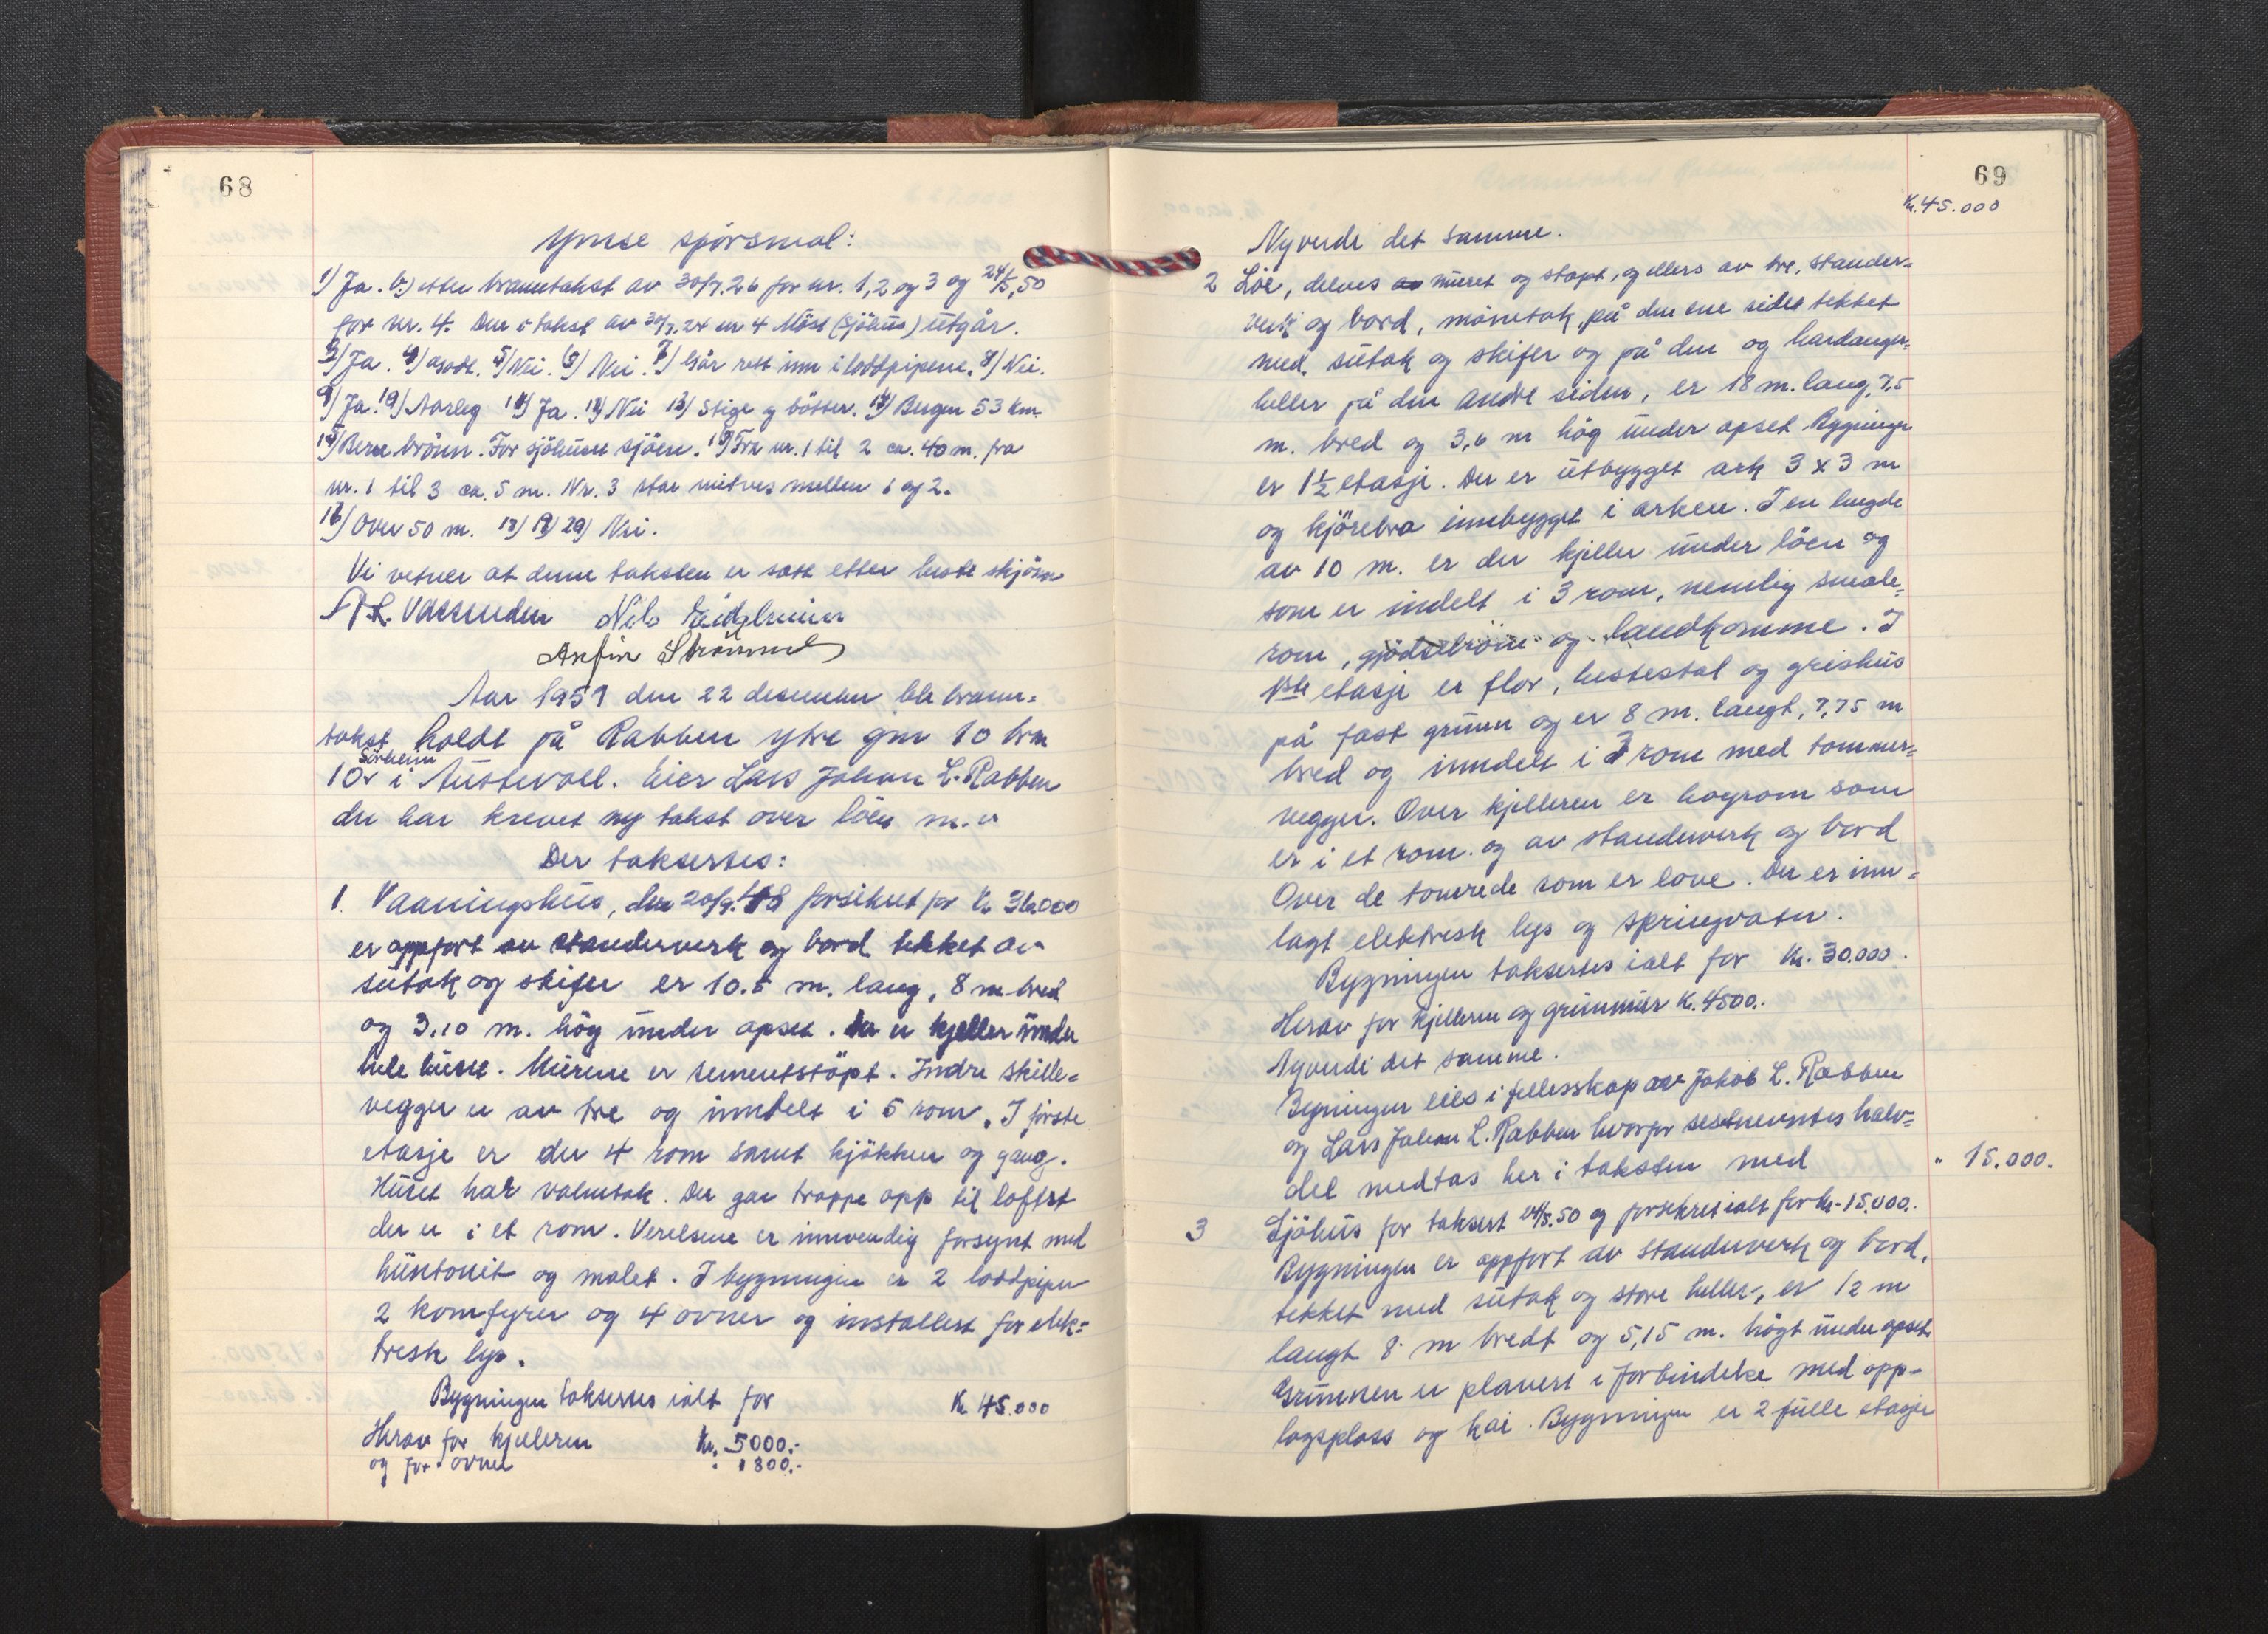 68
Ymse spörsmal:
1) Ja. 2) etter branntakst av 30/7.26 for nr. 1, 2 og 3 og 24/5,50
for nr. 4. Den i takst av 30/7.24 nr 4 (Sjöhus) utgår.
3) Ja. 4) godt. 5) Nei. 6) Nei. 7) Går rett inn i loddpipene. 8) Nei.
9) Ja. 10) Aarleg 11) Ja. 12) Nei 13) Stige og bötter. 14) Bergen 53 km
15) Berre brönn. For sjöhuset sjöen. Fra nr. 1 til 2 ca. 40 m. fra
nr. 1 til 3 ca. 5 m. Nr. 3 star mellem 1 og 2.
Over 50 m. Nei.
Vi vetner at denne taksten er satt etter beste skjönn
Nils
Arfin
Aar 1951 den 22 desember ble brann-
takst holdt på Rabben ytre gnr 10 brn
10 Sörheim i Austevoll. Eier Lars Johan L. Rabben
der har krevet ny takst over löen m.v
Der taksertes:
1. Vaaningshus, den 20/9. 48 forsikret for Kr 36.000
er oppfort av standerverk og bord tekket av
sutak og skifer er 10.5 m. lang, 8 m bred
og 3,10 m. hög under opset. Der er kjeller under
hele huset. Murene er sementstöpt. Indre skille-
vegger er av tre og inndelt i 5 rom. I förste
etasje er der 4 rom samt kjökken og gang.
Huset har valmtak. Der gar trappe opp til loftet
der er i et rom. Verelsene er innvendig forsynt med
huntonit og malet. I bygningen er 2 loddpiper
2 komfyrer og 4 ovner og installert for elek-
trisk lys.
Bygningen taksertes ialt for Kr 45.000
Herav for kjelleren Kr. 5000.-
og for ovner " 1800.-
69
Kr. 45.000
Nyverdi det samme.
2 Löe, delves av muret og stöpt, og ellers av tre, stander-
verk og bord, mönetak, på den ene siden tekket
med sutak og skifer og på den og hardanger-
heller på den andre siden, er 18 m. lang, 7,5
m. bred og 3,6 m hög under opset. Bygningen
er 1½ etasje. Der er utbygget ark 3 x 3 m
og kjörebro innbygget i arken. I en lengde
av 10 m. er der kjeller under löen og
som er indelt i 3 rom, nemlig smale-
rom, gjödselbrönn og landkomme. I
1ste etasje er flor, hestestal og grishus
på fast grunn og er 8 m. langt, 7,75 m
bred og inndelt i 3 rom med tommer-
vegger. Over kjelleren er hoyrom som
er i et rom og av standerverk og bord
Over de tomrede rom er love. Der er inn-
lagt elektrisk lys og springvatn.
Bygningen taksertes ialt for Kr. 30.000.
Herav for kjelleren og grunnmur Kr. 4500.-
Nyverdi det samme.
Bygningen eies i fellesskap av Jakob L. Rabben
og Lars Johan L. Rabben hvorfor sestnevntes halv-
del medtas her i taksten med " 15.000.
3 Sjöhus for taksert 24/5.50 og forsikret ialt for Kr. 15.000.-
Bygningen er oppfort av standerverk og bord,
tekket med sutak og store heller, er 12 m
langt 8 m bredt og 5,15 m. högt under opset.
Grunnen er planert i forbindelse med opp-
lagsplass og kai. Bygningen er 2 fulle etasjer